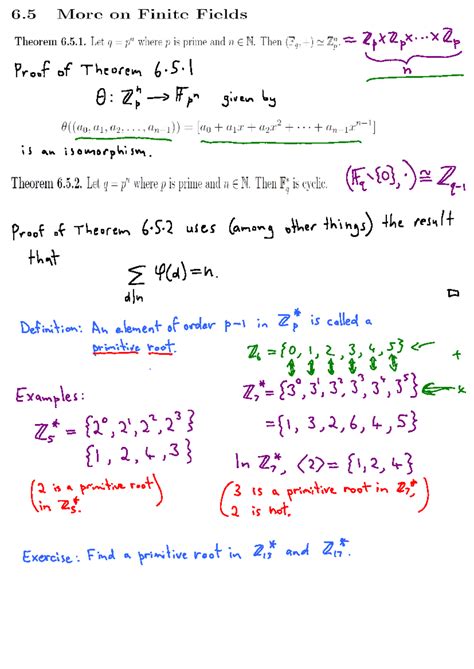 6.5 More on Finite Fields
Theorem 6.5.1. Let q = pⁿ where p is prime and n ∈ ℕ. Then (𝔽_q, +) ≃ ℤₚⁿ. ≈ ℤₚ×ℤₚ×⋯×ℤₚ
n
Proof of Theorem 6.5.1
θ: ℤₚⁿ → 𝔽_pⁿ given by
θ((a₀, a₁, a₂, …, aₙ₋₁)) = [a₀ + a₁x + a₂x² + ⋯ + aₙ₋₁xⁿ⁻¹]
is an isomorphism.
Theorem 6.5.2. Let q = pⁿ where p is prime and n ∈ ℕ. Then 𝔽_q* is cyclic. (𝔽_q∖{0}, ·) ≅ ℤ_q-1
Proof of Theorem 6.5.2 uses (among other things) the result
that
∑ φ(d)=n.
d|n
□
Definition: An element of order p-1 in ℤₚ* is called a
primitive root.
ℤ₆ = {0, 1, 2, 3, 4, 5} ← +
Examples:
ℤ₇* = {3⁰, 3¹, 3², 3³, 3⁴, 3⁵} ← ×
ℤ₅* = {2⁰, 2¹, 2², 2³}
= {1, 3, 2, 6, 4, 5}
{1, 2, 4, 3}
In ℤ₇*, ⟨2⟩ = {1, 2, 4}
(2 is a primitive root
in ℤ₅*)
(3 is a primitive root in ℤ₇*,
2 is not.)
Exercise: Find a primitive root in ℤ₁₃* and ℤ₁₇*.